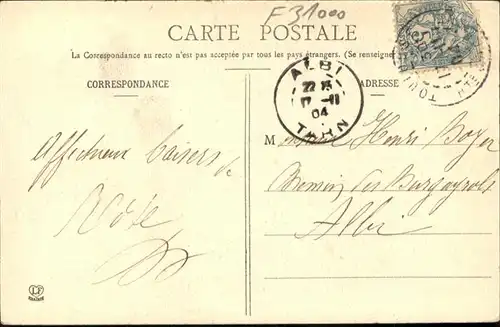 F31000
CARTE POSTALE
La Correspondance au recto n'est pas acceptée par tous les pays étrangers. (Se renseigner
CORRESPONDANCE
ADRESSE
ALBI
22 15
17 - 11
04
TARN
TOULOUSE
Affectueux baisers de
Rose
Monsieur Henri Boyer
Chemin des Bargayrols
Albi
LF